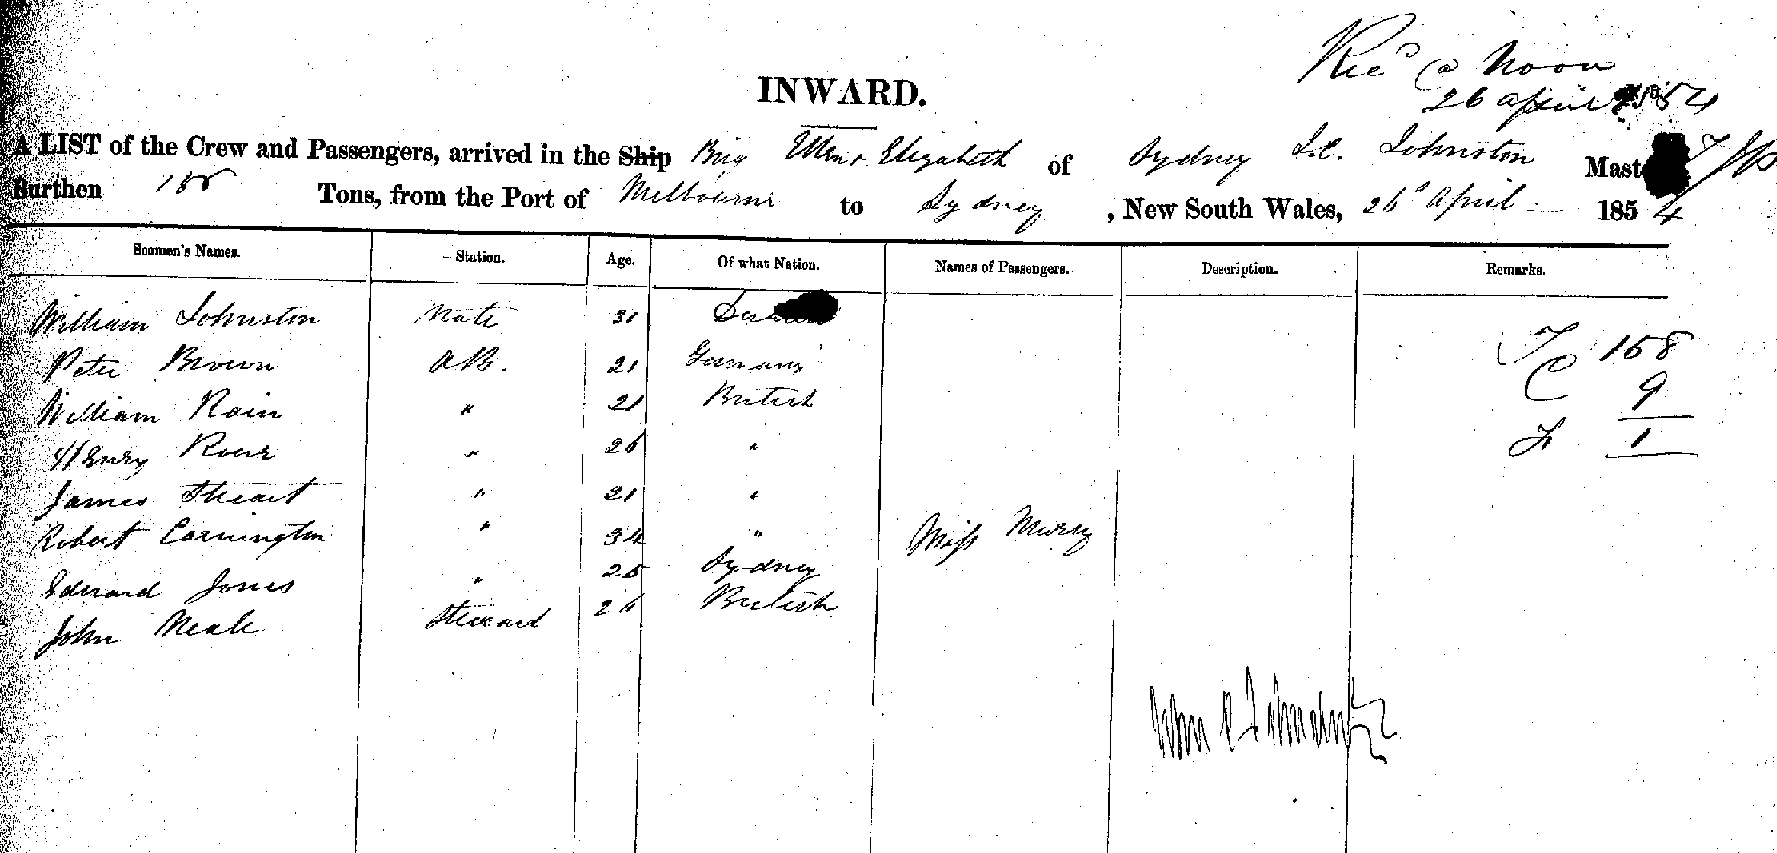 Rec'd @ Noon
26 April 1854
INWARD.
A LIST of the Crew and Passengers, arrived in the Ship Brig Ellen & Elizabeth of Sydney J.C. Johnston Master
Burthen 158 Tons, from the Port of Melbourne to Sydney , New South Wales, 26 April 1854
Seamen's Names. Station. Age. Of what Nation. Names of Passengers. Description. Remarks.
William Johnston Mate 31
Peter Brown A.B. 21 Germany T 158
William Rain " 21 British C 9
Henry " 26 " 1
James Stewart " 21 "
Robert Carrington " 34 " Miss Murry
Edward Jones " 25 Sydney
John Neale Steward 26 British
John C Johnston